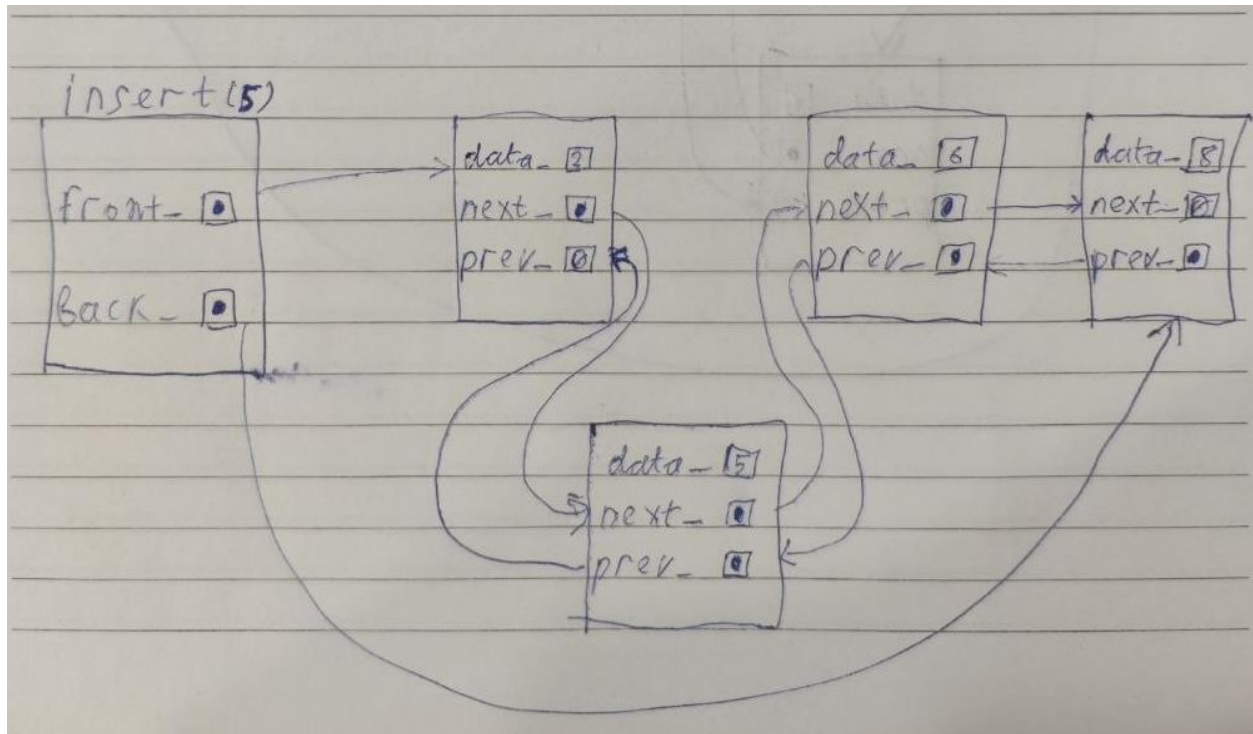 insert(5)
front_
Back_
data_ 3
next_
prev_ 0
data_ 6
next_
prev_
data_ 8
next_ 0
prev_
data_ 5
next_
prev_